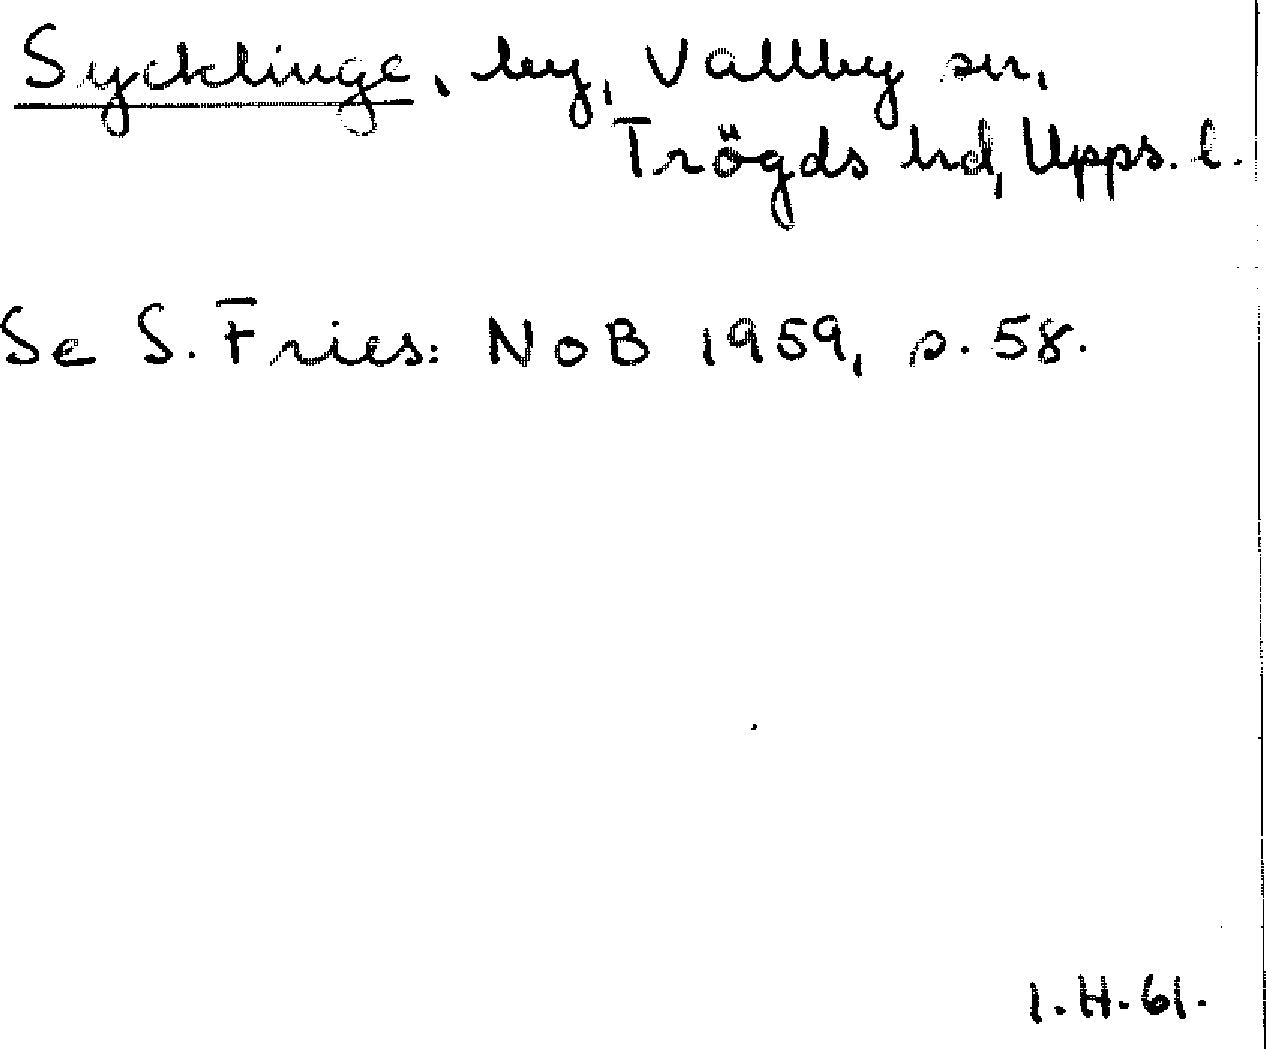 Sycklinge, by, Vallby sn,
Trögds hd, Upps. l.
Se S. Fries: NoB 1959, s. 58.
I.H.61.